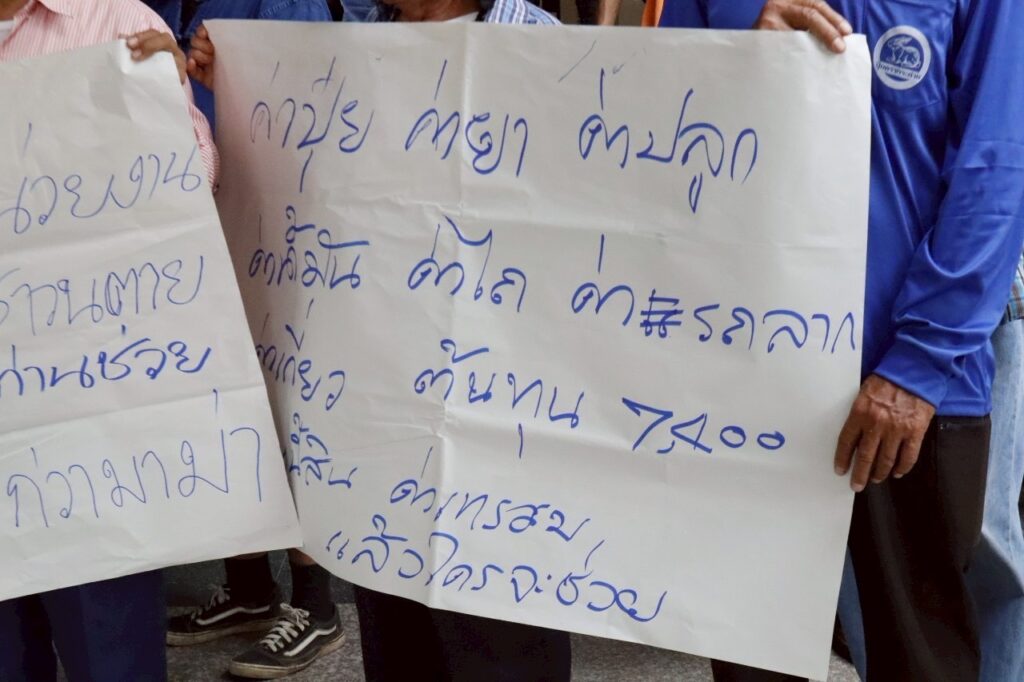 ค่าปุ๋ย ค่ายา ค่าปลูก
ค่าน้ำมัน ค่าไถ ค่ารถลาก
ค่าเกี่ยว ต้นทุน 7,400
หนี้สิน ค่าเทอม
แล้วใครจะช่วย
น่วยงาน
ชาวนาตาย
ท่านช่วย
กว่ามาม่า